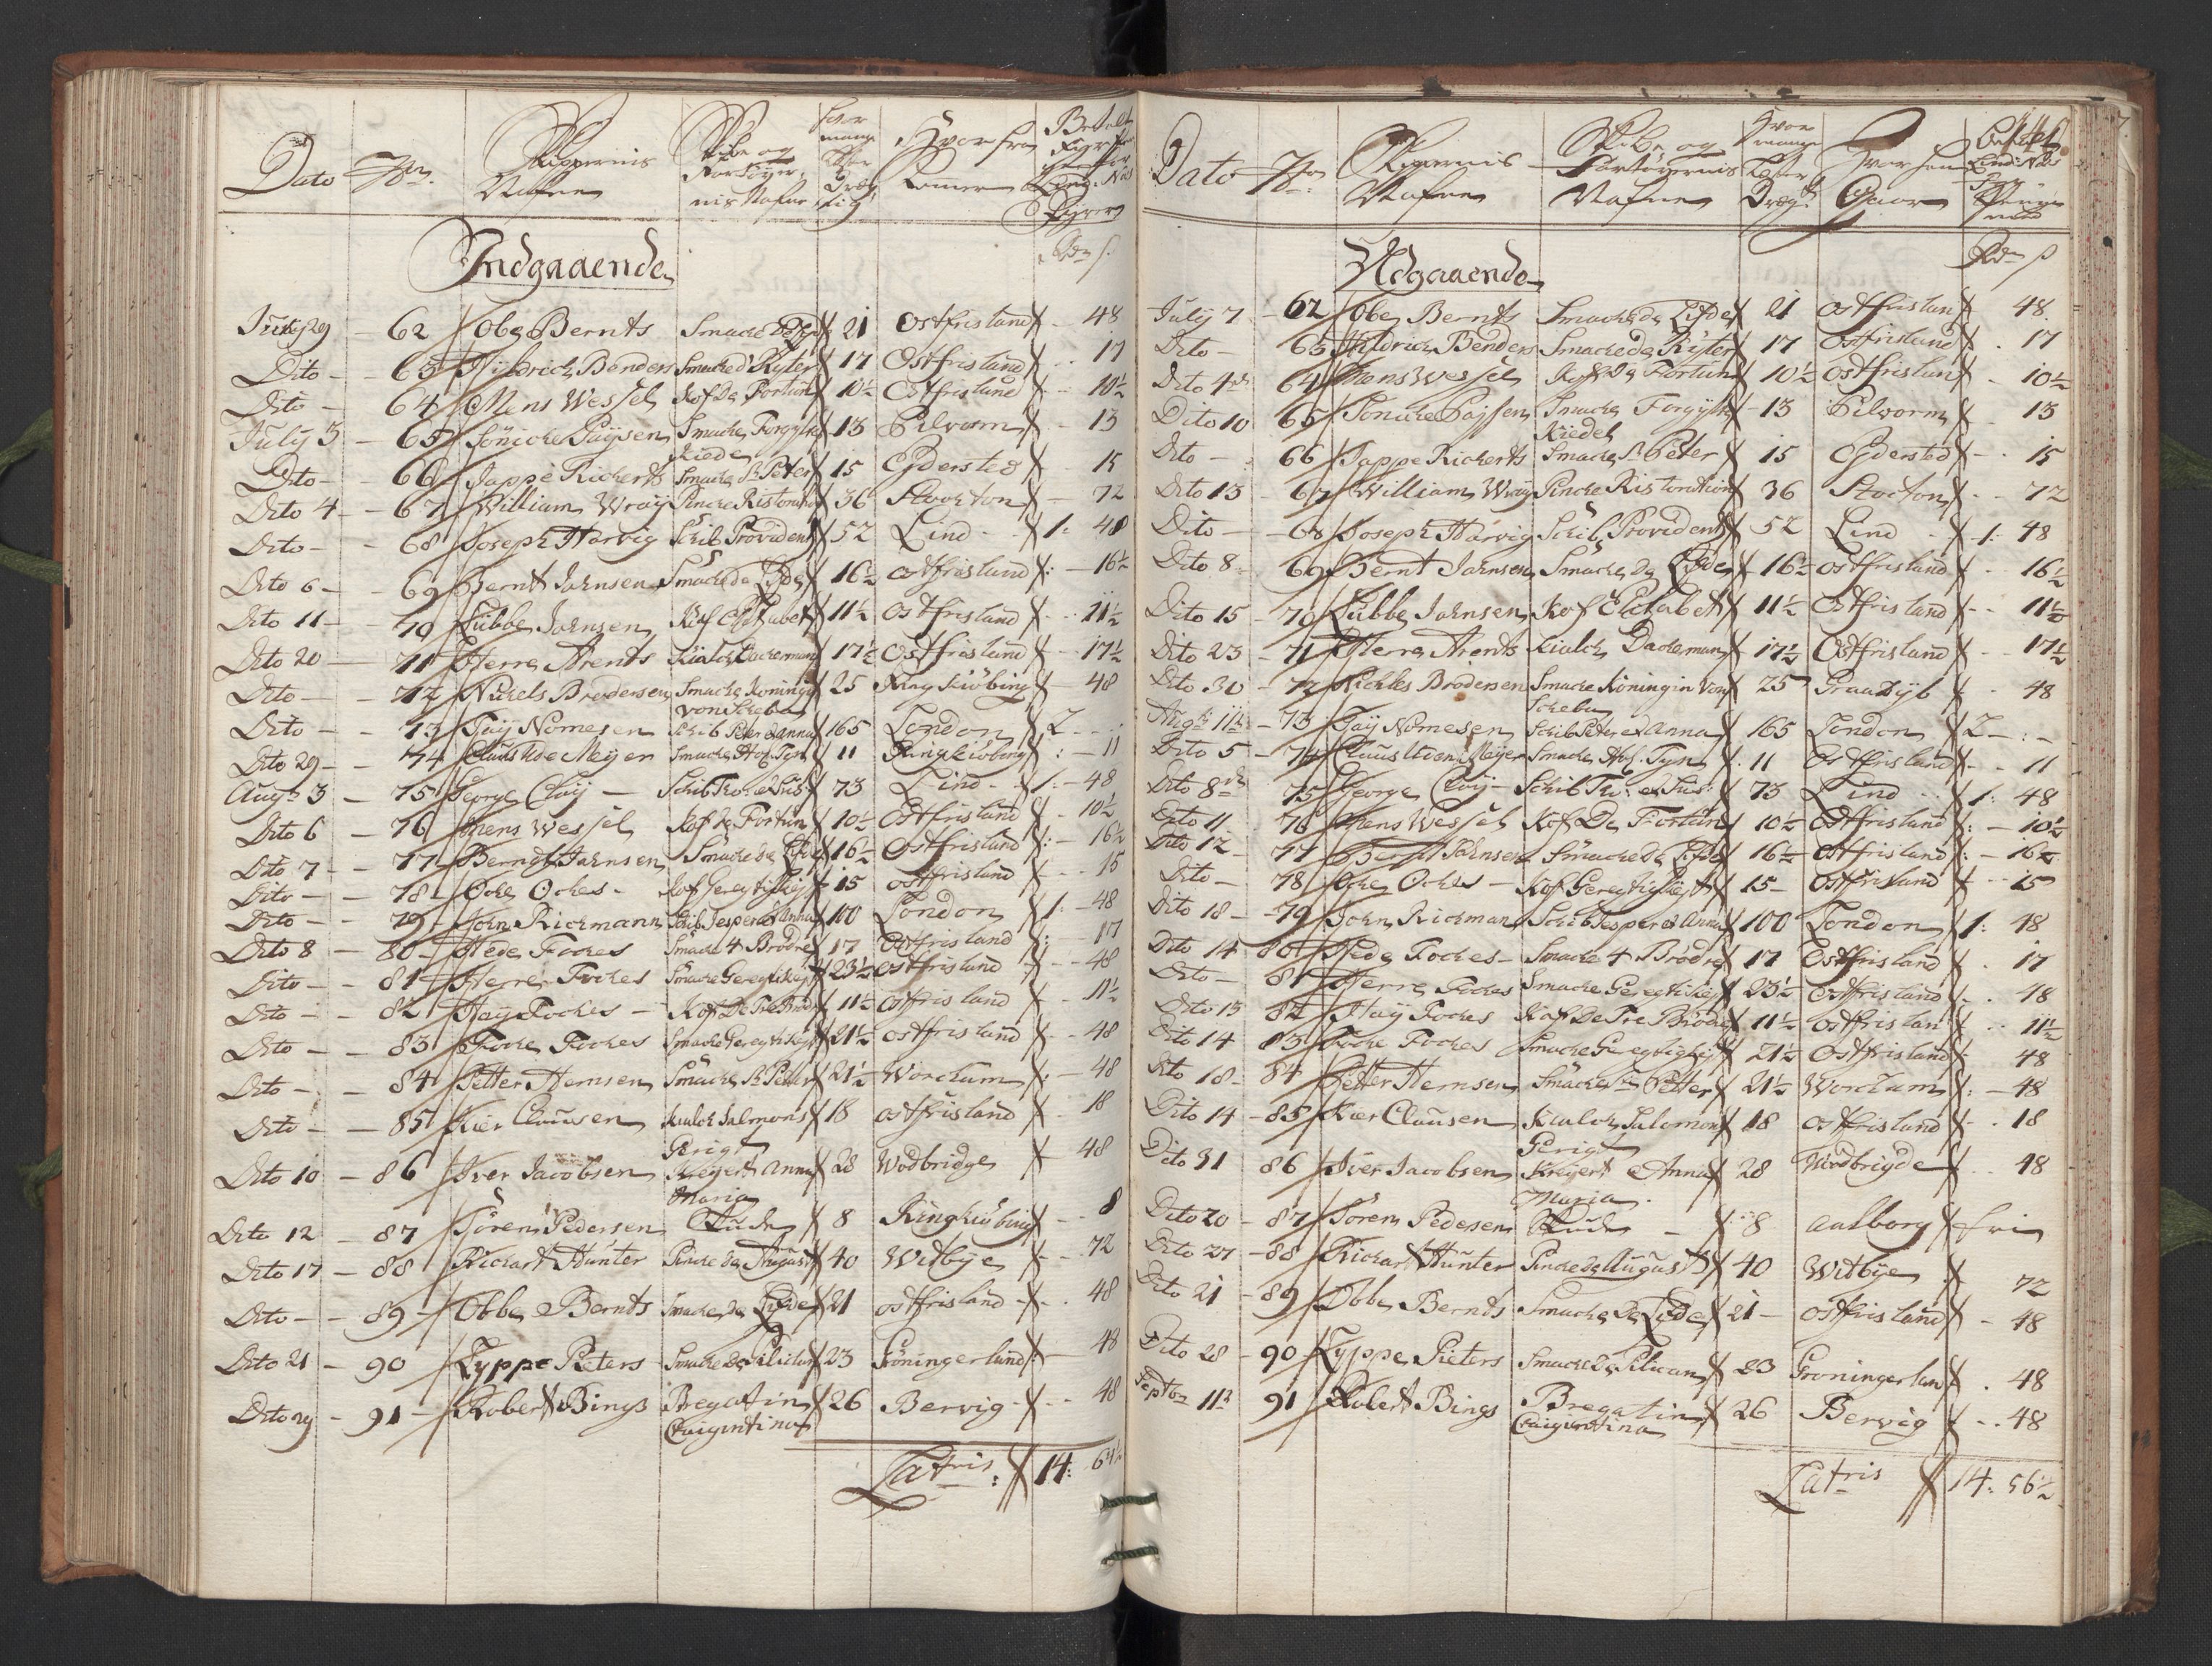 Dato No. Skippernis Nafne Skibe og Fartøyernis Nafne Hvor mange Læster Drægtig Hvor fra kommer Betalt Fyr Lindes Næs Fyrer
Indgaaende
Rdr ß
Juny 29 - 62 Obe Bernts Smacke De Lifde 21 Ostfrisland 48
Dito - 63 Hildrich Benders Smacke d Ryter 17 Ostfrisland 17
Dito - 64 Mens Wessels Kof De Fortun 10½ Ostfrisland 10½
July 3 - 65 Sönicke Paysen Smacke Forgylte 13 Pilvorm 13
Kiede
Dito - 66 Jappe Rickerts Smacke St Peter 15 Eydersted 15
Dito 4 - 67 William Wray Pincke Ristoration 36 Stockton 72
Dito - 68 Joseph Harvig Schib Provident 52 Lind 1: 48
Dito 6 - 69 Bernt Jahnsen Smacke de Lifde 16½ Ostfrisland 16½
Dito 11 - 70 Lübbe Jahnsen Kof Elisabet 11½ Ostfrisland 11½
Dito 20 - 71 Herre Arents Kialck Dackerman 17½ Ostfrisland 17½
Dito - 72 Nickels Brodersen Smacke Koningin 25 Ringkiöbing 48
von Scheba
Dito - 73 Tay Nomesen Schib Peter et Anna 165 London 2
Dito 29 - 74 Claus Moe Meyer Smacke Hof. Tyn 11 Ringkiöbing 11
Augt 3 - 75 George Clay Schib 73 Lind 1: 48
Dito 6 - 76 Mens Wessels Kof de Fortun 10½ Ostfrisland 10½
Dito 7 - 77 Berndt Jahnsen Smacke de Lifde 16½ Ostfrisland 16½
Dito - 78 Ocke Ockes Kof Geregtikeyt 15 ostfrisland 15
Dito - 79 John Rickmann Schib Jesper et Anna 100 London 1: 48
Dito 8 - 80 Hede Fockes Smacke 4 Brödre 17 Ostfrisland 17
Dito - 81 Herre Fockes Smacke Geregtikeyt 23½ ostfrisland 48
Dito - 82 Hay Fockes Kof De Tre Brödre 11½ ostfrisland 11½
Dito - 83 Focke Fockes Smacke Geregtikeyt 21½ ostfrisland 48
Dito - 84 Petter Hemsen Smacke St Petter 21½ Worckum 48
Dito - 85 Kier Clausen Kialck Salmons 18 ostfrisland 18
Gerigt
Dito 10 - 86 Iver Jacobsen Kreyert Anna 28 Wodbridge 48
Maria
Dito 12 - 87 Sören Pedersen Skude 8 Ringkiöbing 8
Dito 17 - 88 Rickart Hunter Pincke de August 40 Witbye 72
Dito - 89 Obbe Bernts Smacke de Lifde 21 ostfrisland 48
Dito 21 - 90 Zyppe Pieters Smacke De Pilican 23 Gröningerland 48
Dito 29 - 91 Robert Bings Bregatin 26 Bervig 48
Latris 14:
Dato No. Skippernis Nafne Skibe og Fartøyernis Nafne Hvor mange Læster Drægt. Hvor hen Gaar
Udgaaende
Rdr ß
July 7 - 62 Obe Bernts Smacke de Lifde 21 Ostfrisland 48.
Dito - 63 Hildrich Benders Smacke de Ryter 17 Ostfrisland 17
Dito 4de 64 Mens Wessels Kof De Fortun 10½ Ostfrisland 10½
Dito 10 65 Sonicke Paysen Smacke Forgylte 13 Pilvorm 13
Kiedel
Dito - 66 Jappe Rickerts Smacke St Peter 15 Eydersted 15
Dito 13 - 67 William Wray Pincke Ristoration 36 Stocton 72
Dito - 68 Joseph Harvig Schib Provident 52 Lind 1: 48
Dito 8 - 69 Bernt Jahnsen Smacke de Lifde 16½ Ostfrisland 16½
Dito 15 - 70 Lübbe Jahnsen Kof Elisabet 11½ Ostfrisland 11½
Dito 23 - 71 Herre Arents Kialck Dackerman 17½ Ostfrisland 17½
Dito 30 - 72 Nickles Brodersen Smacke Koningin von 25 Graadyb 48
Scheba
Augt 11te - 73 Tay Nomesen Schib Peter et Anna 165 London 2
Dito 5 - 74 Claus Meyer Smacke Hof. Tyn 11 Ostfrisland 11
Dito 8de 75 George Clay Schib 73 Lind 1: 48
Dito 11 76 Mens Wessels Kof De Fortun 10½ Ostfrisland 10½
Dito 12 - 77 Bernt Jahnsen Smacke de Lifde 16½ Ostfrisland 16½
Dito - 78 Ocke Ockes Kof Geregtigkeyt 15 Ostfrisland 15
Dito 18 - 79 John Rickman Schib Jesper et Anna 100 London 1: 48
Dito 14 80 Hede Fockes Smacke 4 Brödre 17 Ostfrisland 17
Dito - 81 Herre Fockes Smacke Geregtikeyt 23½ Ostfrisland 48
Dito 13 82 Hay Fockes Kof De Tre Brödre 11½ Ostfrislan 11½
Dito 14 83 Focke Fockes Smacke Geregtigkeyt 21½ Ostfrisland 48
Dito 18 - 84 Petter Hemsen Smacke St Petter 21½ Worckum 48
Dito 14 - 85 Kier Clausen Kialck Salomons 18 Ostfrisland 18
Gerigt
Dito 31 86 Iver Jacobsen Kreyert Anna 28 Wordbrigde 48
Maria
Dito 20 - 87 Sören Pedesen Skude 8 Aalborg fri
Dito 27 - 88 Rickart Hunter Pincke de August 40 Witbye 72
Dito 21 - 89 Obbe Bernds Smacke De Lifde 21 Ostfrisland 48
Dito 28 - 90 Zyppe Pieters Smacke De Pilican 23 Groningerlan 48
Septbr 11te 91 Robert Bings Bregatin 26 Bervig 48
Latris 14: 56½